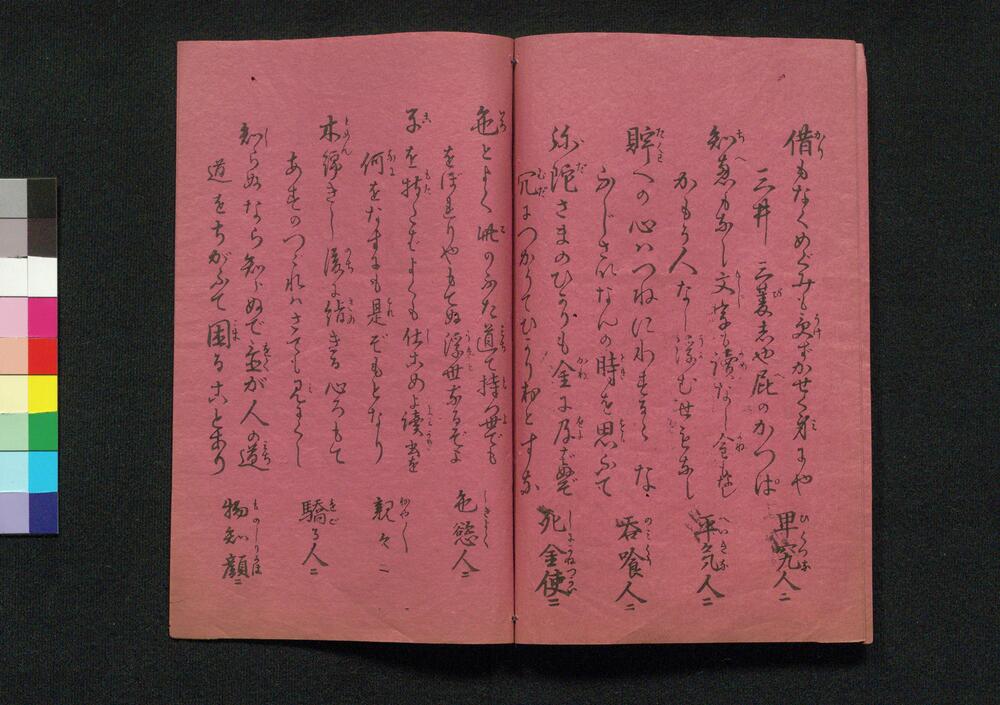 借もなくめぐみも受ずかせぐ身にや
三井 三菱もや屁のかつぱ
卑究人ニ
知恵もなし文字も読なし金もなし
かもう人なし浮む世もなし
平気人ニ
貯への心ハつねにわするゝな
ふじさいなんの時を思ふて
呑喰人ニ
弥陀さまのひかりも金に及ばぬぞ
冗につかうてひかり扣とすな
死金使ニ
色とよく此のふた道で持つ世でも
をぼれやもせぬ浮世なるぞよ
色慾人ニ
子を持たばよくも仕こめよ読書を
何をなすにも是ぞもとなり
親々ニ
木綿きし後に絹きる心もて
あすのつゞれハさても見にくし
驕る人ニ
知らぬなら知らぬで並が人の道
道をちがふて困ることあり
物知顔ニ